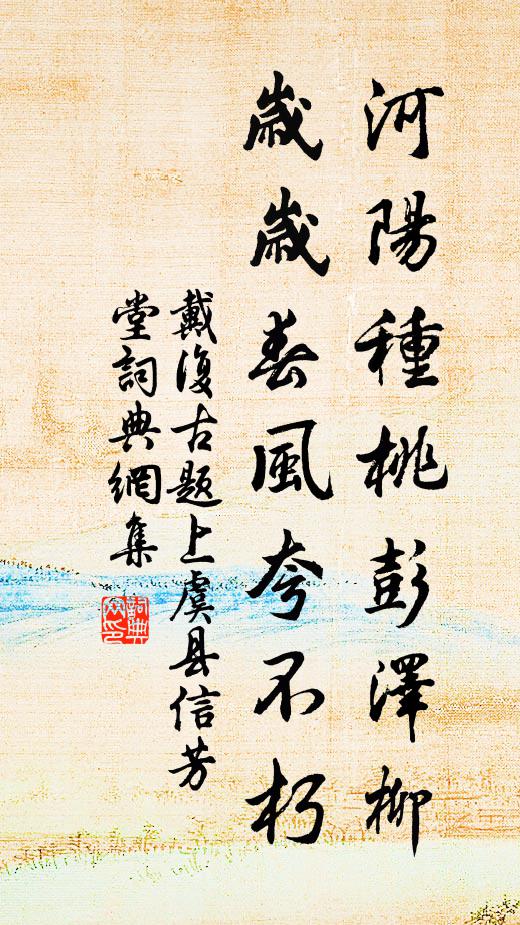 河陽種桃彭澤柳
歲歲春風夸不朽
戴復古题上虞县信芳
堂詞典網集
詞典